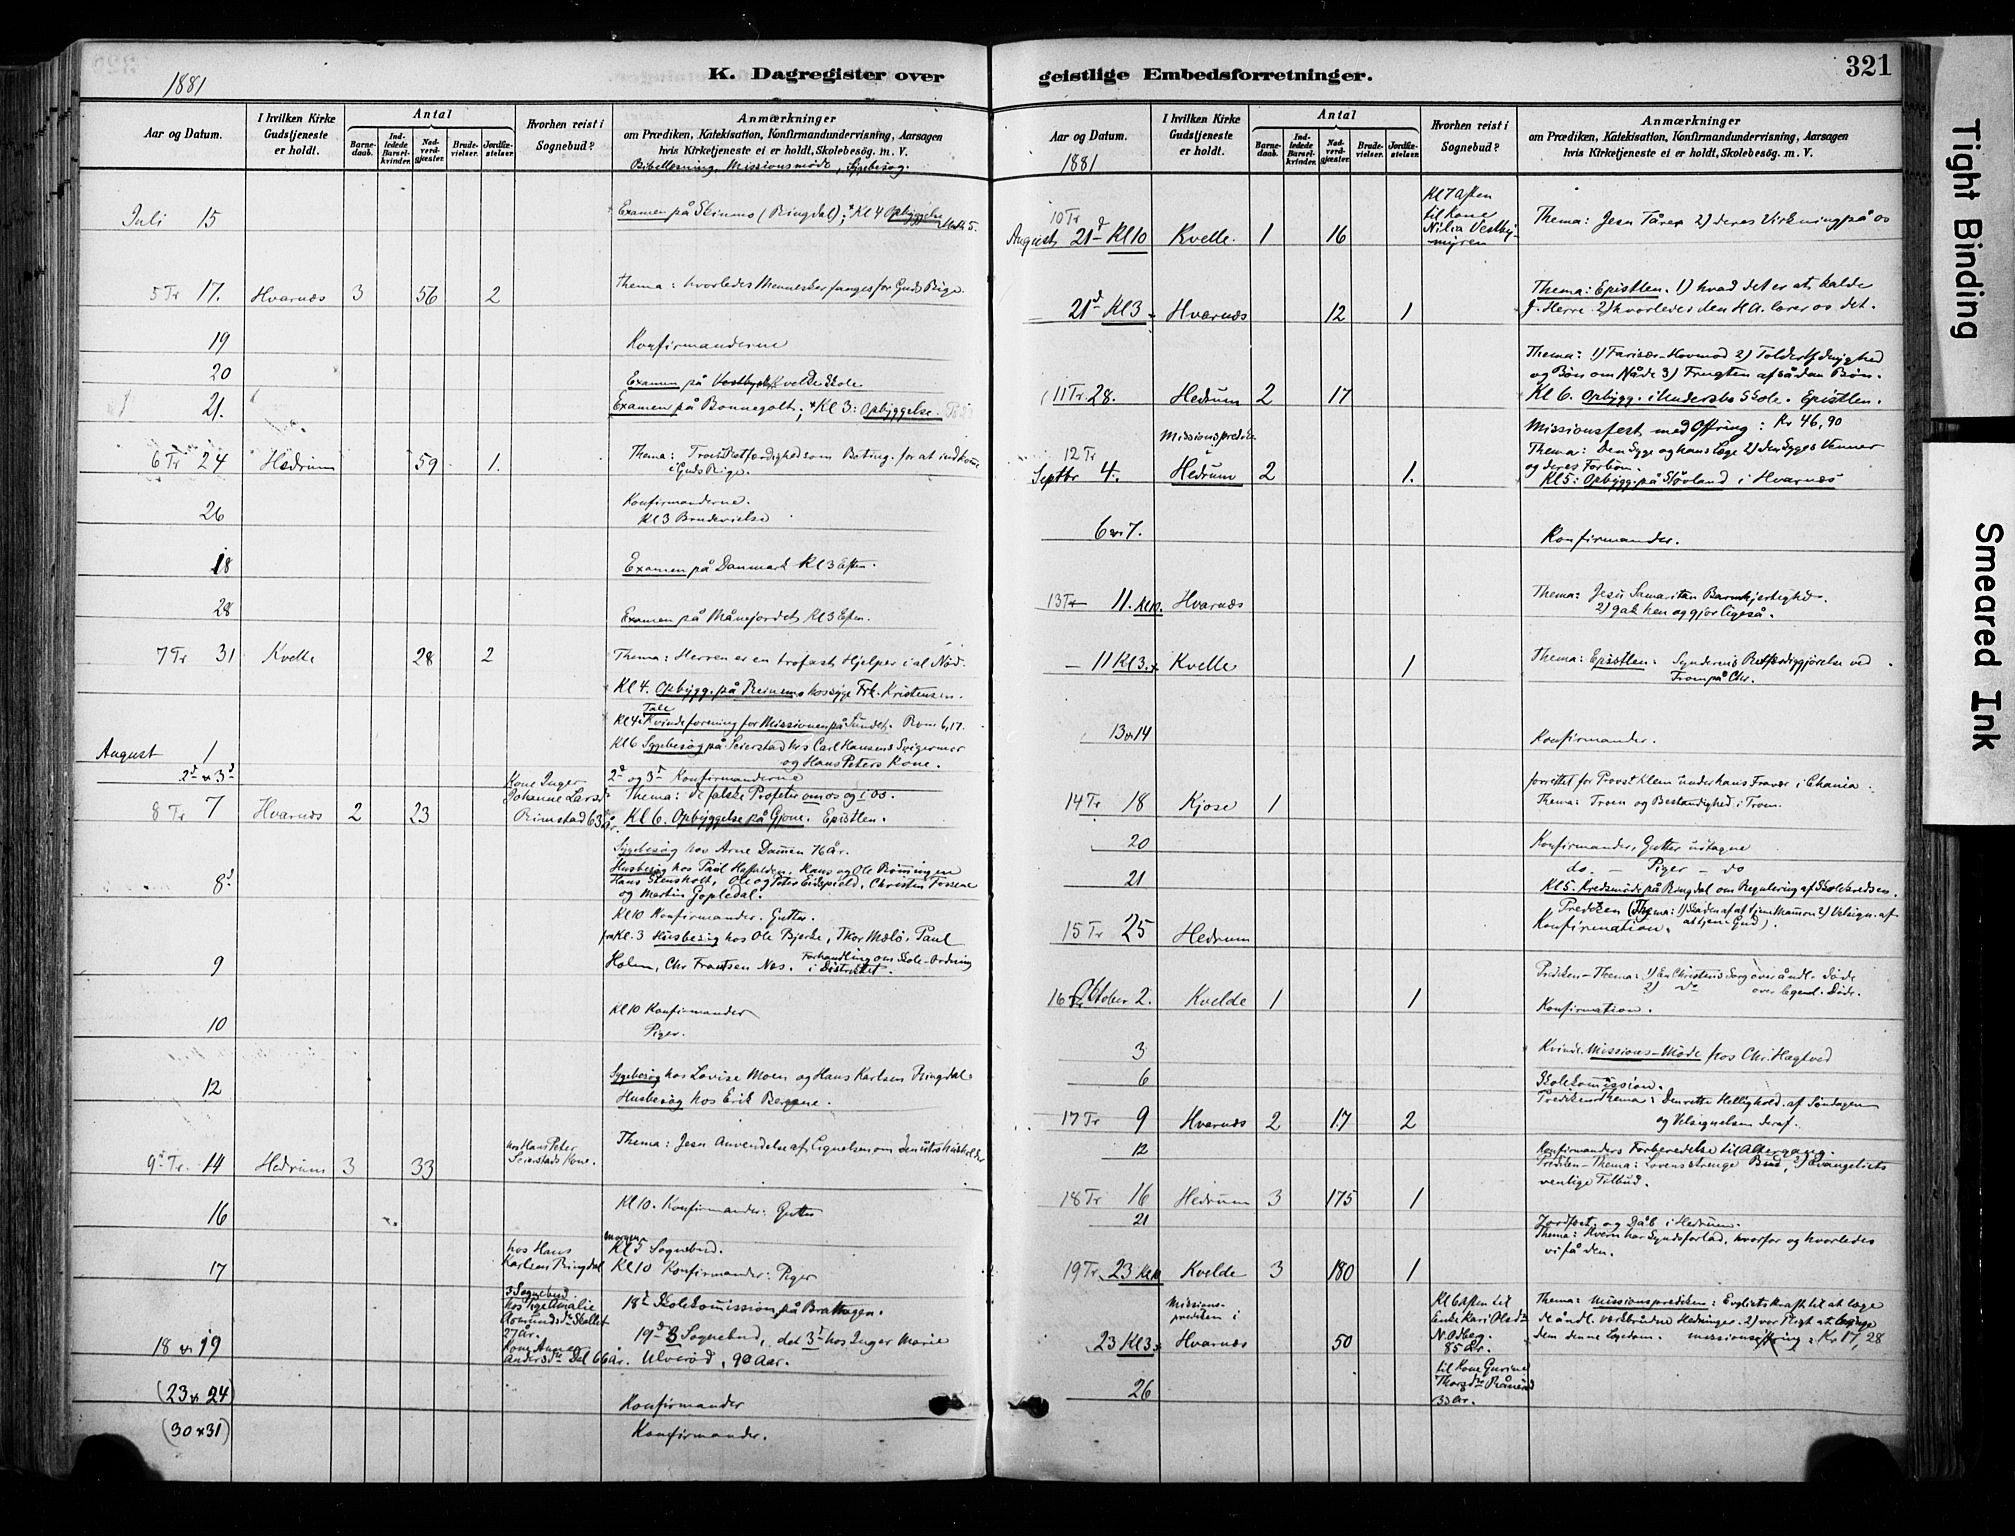 1881
K. Dagregister over
Aar og Datum.
I hvilken Kirke Gudstjeneste er holdt.
Antal
Barnedaab.
Indledede Barselkvinder.
Nadverdgjæster.
Brudevielser.
Jordfæstelser.
Hvorhen reist i Sognebud?
Anmærkninger
om Prædiken, Katekisation, Konfirmandundervisning, Aarsagen
hvis Kirketjeneste ei er holdt, Skolebesög. m. V.
Bibellesning, Missionsmøde, Sygebesøg.
Juli 15 Examen på (Ringdal); Kl 4 Opbyggelse Math 5.
5 Tr 17. Hvarnæs 3 56 2 Thema: hvorledes Mennesker fanges for Guds Rige.
19 Konfirmanderne
20 Examen på Kvelde Skole
21. Examen på Bonnegolt; Kl 3: Opbyggelse.
6 Tr 24 Hedrum 59 1. Thema: som Beting. for at indkom.
i Guds Rige.
26 Konfirmanderne.
Kl 3 Brudevielse
18 Examen på Danmark Kl 3 Eften.
28 Examen på Månejordet Kl 3 Eften.
7 Tr 31 Kvelle 28 2 Thema: Herren er en trofast Hjelper i al Nød.
Kl 4. Opbygg. på hos syge Frk. Kristensen.
Tale
Kl 4 Kvindeforening for Missionen på Sundet. Rom 6,17.
August 1 Kl 6 Sygebesøg på Seierstad hos Carl Hansens Svigermor
og Hans Peters Kone.
2d & 3d 2d og 3d Konfirmanderne
8 Tr 7 Hvarnæs 2 23 Kone Inger Johanne Larsd. Rimstad 63 År. Thema: de falske Profeter om os og i os.
Kl 6. Opbyggelse på Gjone. Epistlen.
Sygebesøg hos Arne Dammen 76 år.
8d. Husbesøg hos Paul Hans og Ole Rønningen
Hans Stensholt, Ole og Peter Eidsvold, Christen Fossene
og Martin Gopledal.
Kl 10 Konfirmander. Gutter.
fra Kl. 3 Husbesøg hos Ole Bjerke, Thor Mælø, Paul
9 Holm, Chr Frantsen Nes. Forhandling om Skole-Ordning
i Distriktet.
10 Kl 10 Konfirmander
Piger.
12 Sygebesøg hos Lovise Moen og Hans Karlsen Ringdal.
Husbesøg hos Erik Bergene.
9d Tr. 14 Hedrum 3 33 hos Hans Peter Seierstads Kone. Thema: Jesu Anvendelse af Lignelsen om den utro Husholder
16 Kl 10. Konfirmander: Gutter
17 hos Hans Karlsen Ringdal morgen Kl 5 Sognebud.
Kl 10 Konfirmander: Piger
3 Sognebud. hos Pige Amalie Asmundsdr 27 År. 18d Skolekomission på Brathagen.
18 & 19 Kone Anne Andersdr Dal 66 år. 19d 3 Sognebud, det 3d hos Inger Marie
Ulverød, 90 Aar.
(23 & 24) Konfirmander
(30 & 31) Konfirmander.
geistlige Embedsforretninger.
321
Aar og Datum.
1881
I hvilken Kirke Gudstjeneste er holdt.
Antal
Barnedaab.
Indledede Barselkvinder.
Nadverdgjæster.
Brudevielser.
Jordfæstelser.
Hvorhen reist i Sognebud?
Anmærkninger
om Prædiken, Katekisation, Konfirmandundervisning, Aarsagen
hvis Kirketjeneste ei er holdt, Skolebesög. m. V.
10 Tr August 21d Kl 10 Kvelle. 1 16 Kl 7 Aften til Kone Nilia Vestbymyren Thema: Jesu Tårer 2) deres Virkning på os
21d Kl 3 Hvarnæs 12 1 Thema: Epistlen. 1) hvad det er at kalde
J. Herre 2) hvorledes den H.A. lærer os det.
11 Tr 28. Hedrum 2 17 Thema: 1) Farisær-Hovmod 2) Tolder Ydmyghed
og Bøn om Nåde 3) Frugten af sådan Bøn.
Kl 6. Opbygg. i Undersbo Skole. Epistlen.
Missionspræediken Missionsfest med Offring: Kr 46,90
12 Tr Septbr 4. Hedrum 2 1. Thema: Den Syge og hans Læge 2) den Syges Venner
og deres Forbøn.
Kl 5: Opbygg. på Støvland i Hvarnæs
6 & 7. Konfirmander.
13 Tr 11. Kl 10. Hvarnæs Thema: Jesu Samaritan Barmhjertighed.
2) gak hen og gjør ligeså.
11 Kl 3. Kvelle 1 Thema: Epistlen: Synderens Retfærdiggjørelse ved
Troen på Chr.
13 & 14 Konfirmander.
forrettet for Provst Klem under hans Fravær i Chania.
14 Tr 18 Kjose 1 Thema: Troen og Bestandighed i Troen.
20 Konfirmander, Gutter udtagne
21 do. - Piger - do
Kl 5. Kredsmøde på Ringdal om Regulering af Skolekredsen.
15 Tr 25 Hedrum Prediken (Thema: 1) Skaden af at tjene Mamon 2) Velsign. af
at tjene Gud).
Konfirmation.
Prediken-Thema: 1) En Christens Sorg over åndl. Døde
2) do over legeml. Døde.
16 Tr Oktober 2. Kvelde 1 1 Konfirmation.
3 Kvinde. Missions-Møde hos Chr. Hagtved
6 Skolekomission.
17 Tr 9 Hvarnæs 2 17 2 Prediken Thema: Den rette Hellighold. af Søndagen
og Velsignelsen deraf.
12 Konfirmanders Forberedelse til Altergang.
18 Tr 16 Hedrum 3 175 1 Prediken-Thema: Lovens strenge Bud, 2) Evangeliets
venlige Tilbud.
21 Jordfæst. og Dåb i Hedrum.
19 Tr. 23 Kl 10 Kvelde 3 180 1 Thema: Hvem har Syndsforlad, hvorfor og hvorledes
vi få den.
23 Kl 3 Missions-prediken i Hvarnæs 50 Kl 6 Aften til Enke Kari Olsdr N. Odberg. 85 År. Thema: Missionsprediken: Evgliets Kraft til at læge
de åndl. verkbrudne Hedninger. 2) vor Pligt at bringe
dem denne Lægedom. Missionsoffring: Kr 17,28
26 til Kone Gurine Thorsdr 33 År.
Tight Binding
Smeared Ink